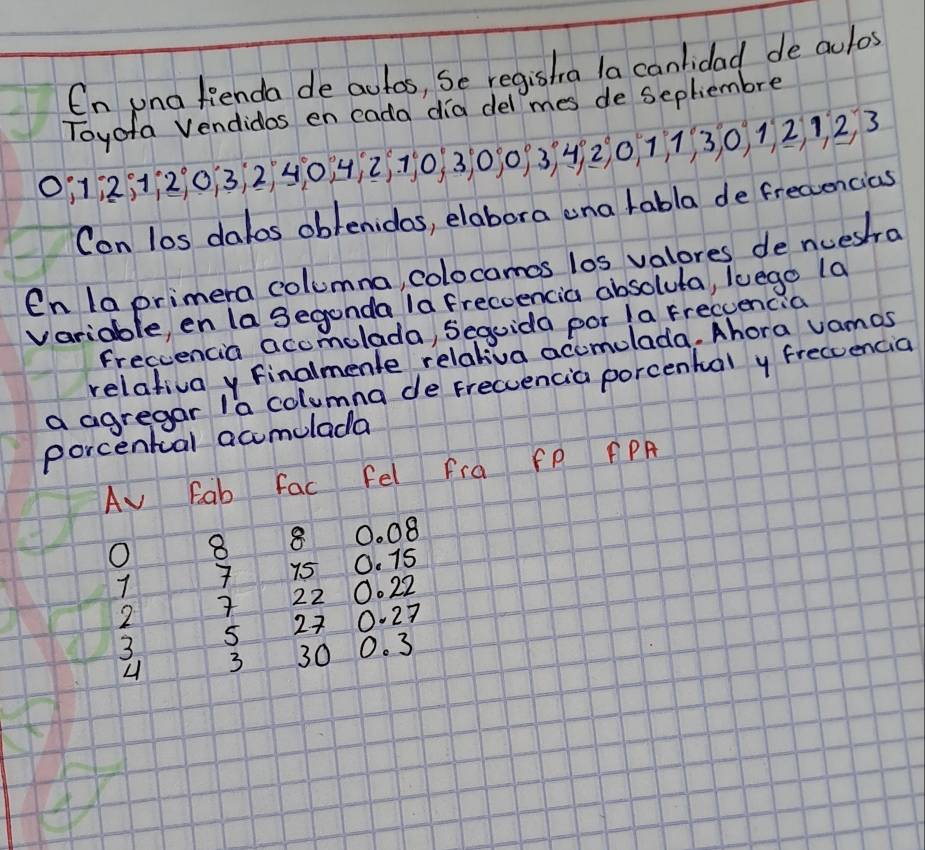 En una tienda de autos, Se registra la cantidad de autos
Toyota vendidos en cada día del mes de Septiembre
0;1;2;1;2;0;3;2;4;0;4;2;1;0;3;0;0;3;4;2;0;1;1;3;0;1;2;1;2;3
Con los datos obtenidos, elabora una tabla de frecuencias
En la primera columna, colocamos los valores de nuestra
variable, en la Segunda la frecuencia absoluta, luego la
frecuencia acomulada, Seguida por la frecuencia
relativa y finalmente relativa acomulada. Ahora vamos
a agregar la columna de frecuencia porcentual y frecuencia
porcentual acumulada
Av Fab fac fel fra fp fPA
0 8 8 0.08
1 7 15 0.15
2 7 22 0.22
3 5 27 0.27
4 3 30 0.3